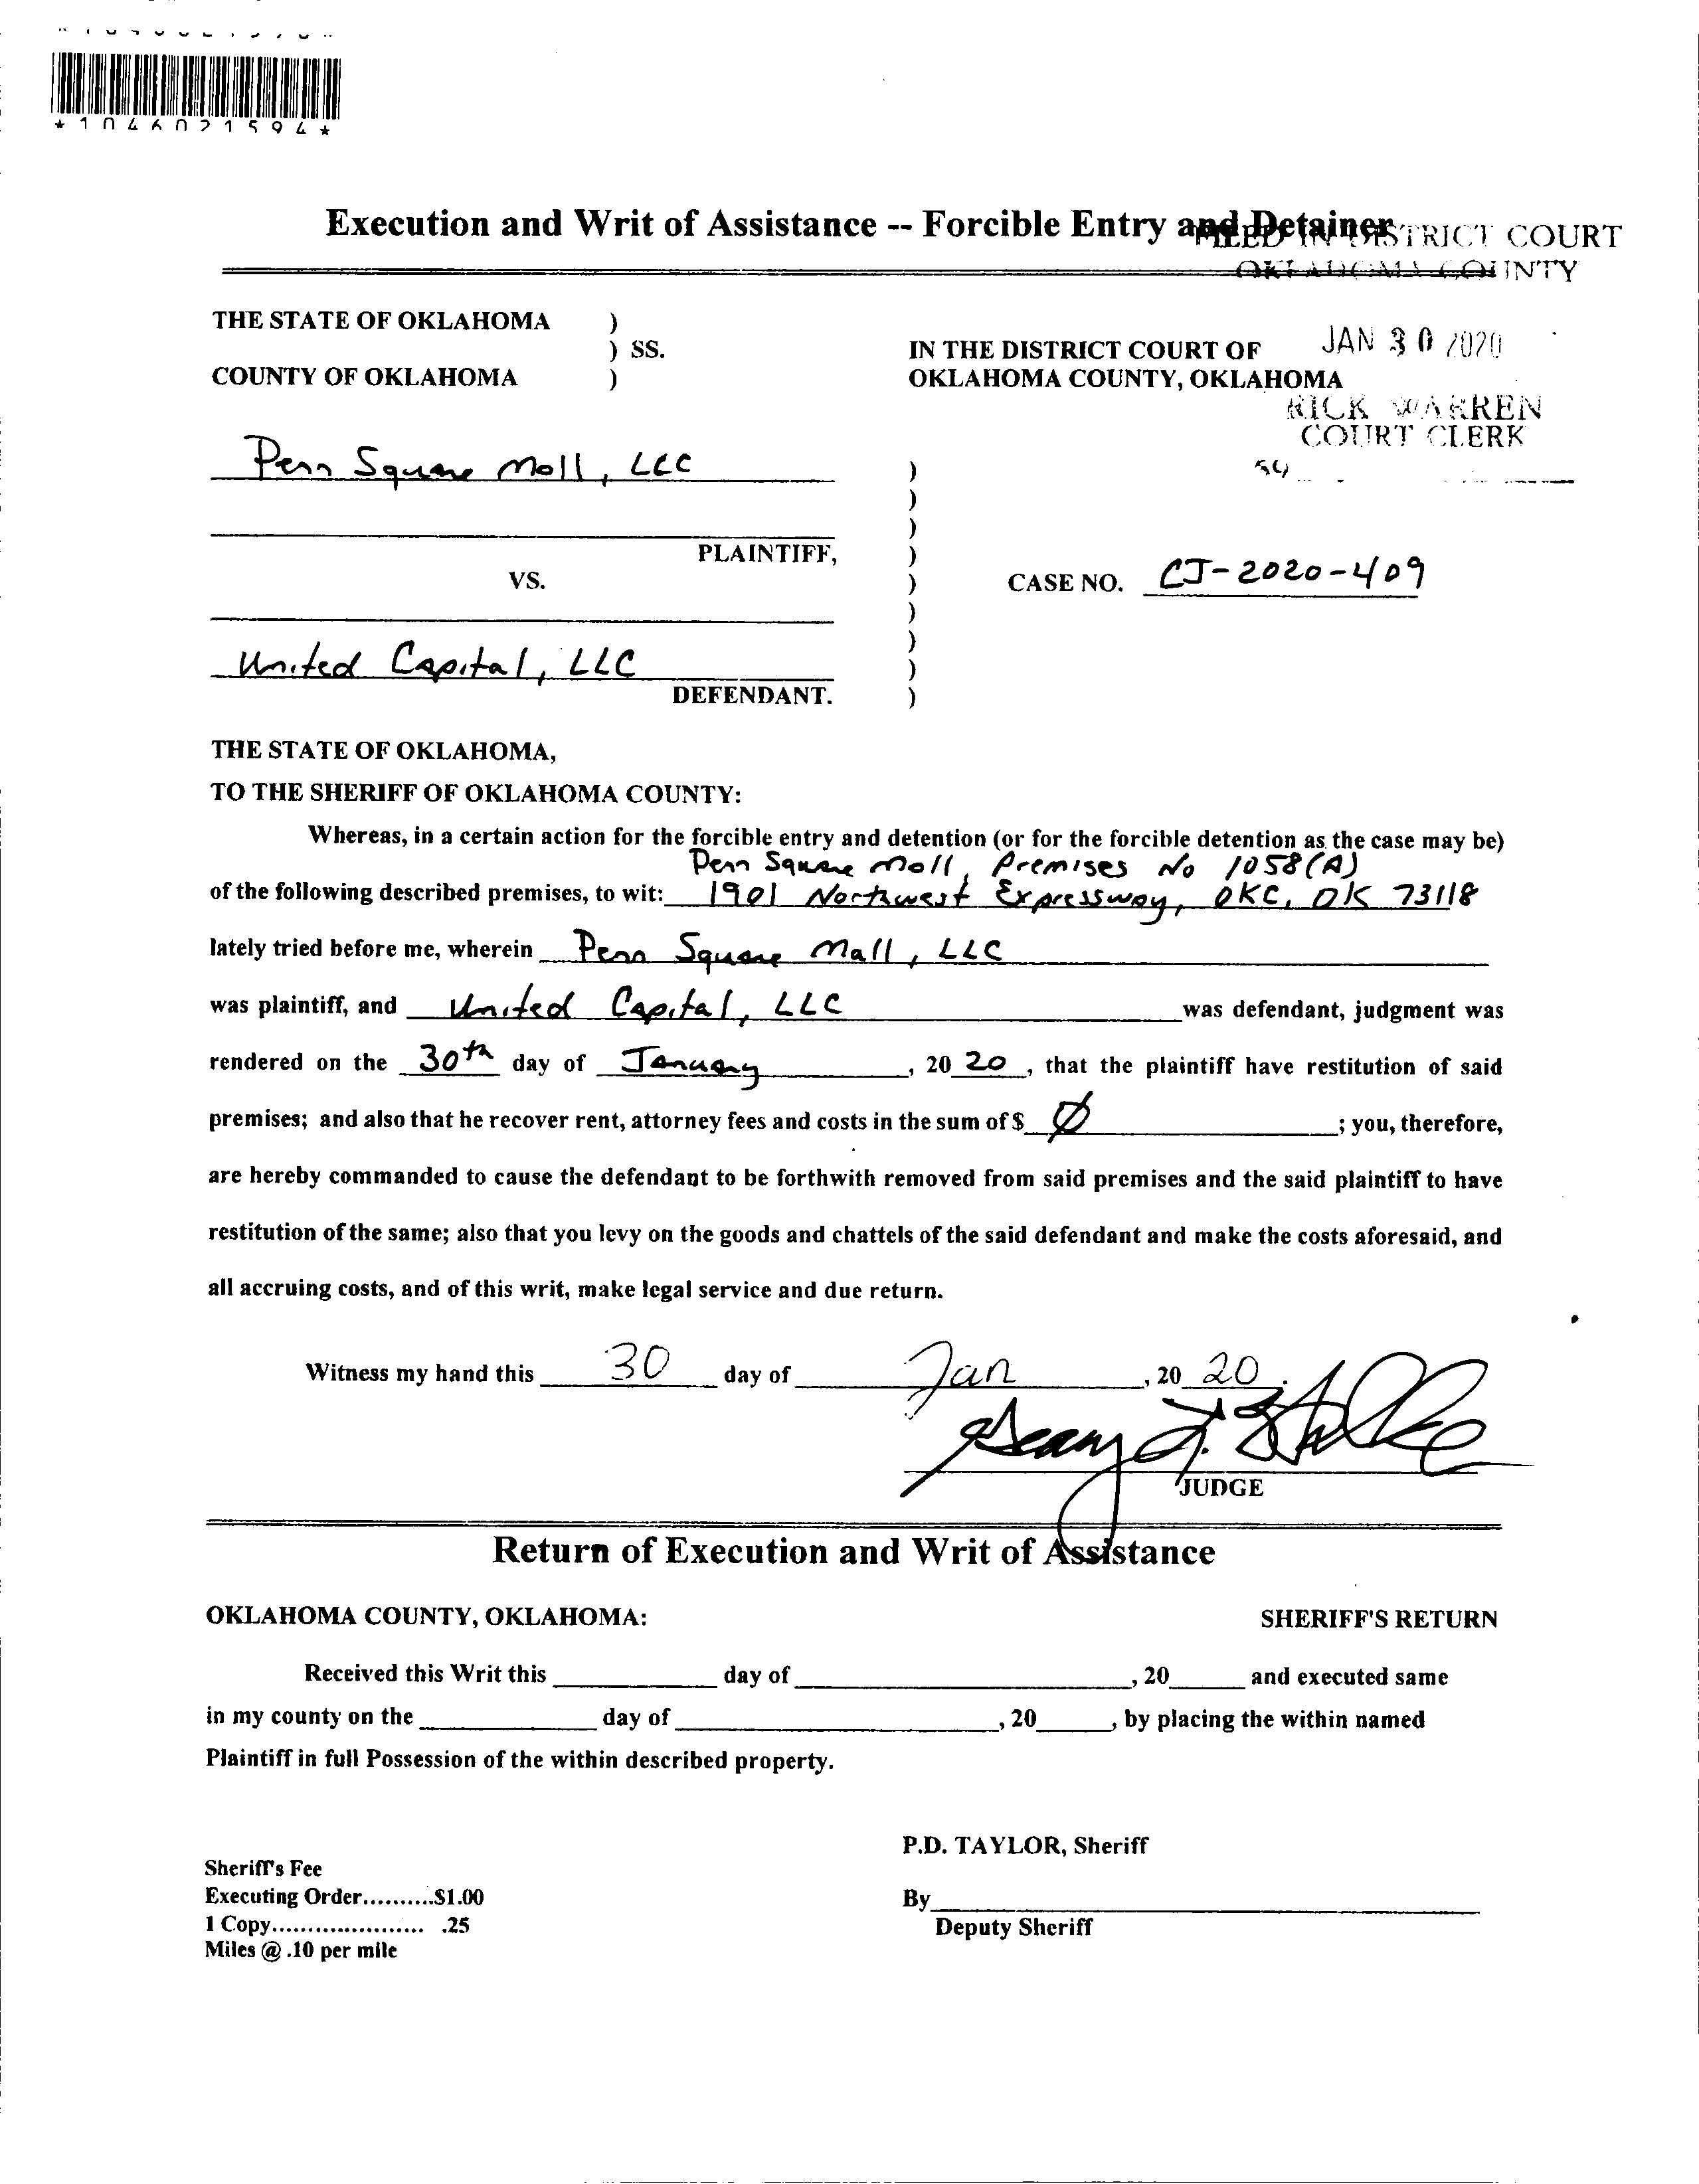 *1046021594*
Execution and Writ of Assistance -- Forcible Entry and Detainer
FILED IN DISTRICT COURT
OKLAHOMA COUNTY
THE STATE OF OKLAHOMA )
) SS.
COUNTY OF OKLAHOMA )
IN THE DISTRICT COURT OF
OKLAHOMA COUNTY, OKLAHOMA
JAN 30 2020
RICK WARREN
COURT CLERK
Penn Square Mall, LLC )
)
)
PLAINTIFF, )
VS. ) CASE NO. CJ-2020-409
)
)
United Capital, LLC )
DEFENDANT. )
THE STATE OF OKLAHOMA,
TO THE SHERIFF OF OKLAHOMA COUNTY:
Whereas, in a certain action for the forcible entry and detention (or for the forcible detention as the case may be)
Penn Square Mall, Premises No 1058(A)
of the following described premises, to wit: 1901 Northwest Expressway, OKC, OK 73118
lately tried before me, wherein Penn Square Mall, LLC
was plaintiff, and United Capital, LLC was defendant, judgment was
rendered on the 30th day of January, 20 20, that the plaintiff have restitution of said
premises; and also that he recover rent, attorney fees and costs in the sum of $ Ø ; you, therefore,
are hereby commanded to cause the defendant to be forthwith removed from said premises and the said plaintiff to have
restitution of the same; also that you levy on the goods and chattels of the said defendant and make the costs aforesaid, and
all accruing costs, and of this writ, make legal service and due return.
Witness my hand this 30 day of Jan, 20 20.
JUDGE
Return of Execution and Writ of Assistance
OKLAHOMA COUNTY, OKLAHOMA: SHERIFF'S RETURN
Received this Writ this ____ day of ____, 20____ and executed same
in my county on the ____ day of ____, 20____, by placing the within named
Plaintiff in full Possession of the within described property.
P.D. TAYLOR, Sheriff
Sheriff's Fee
Executing Order..........$1.00
1 Copy..................... .25
Miles @ .10 per mile
By____
Deputy Sheriff